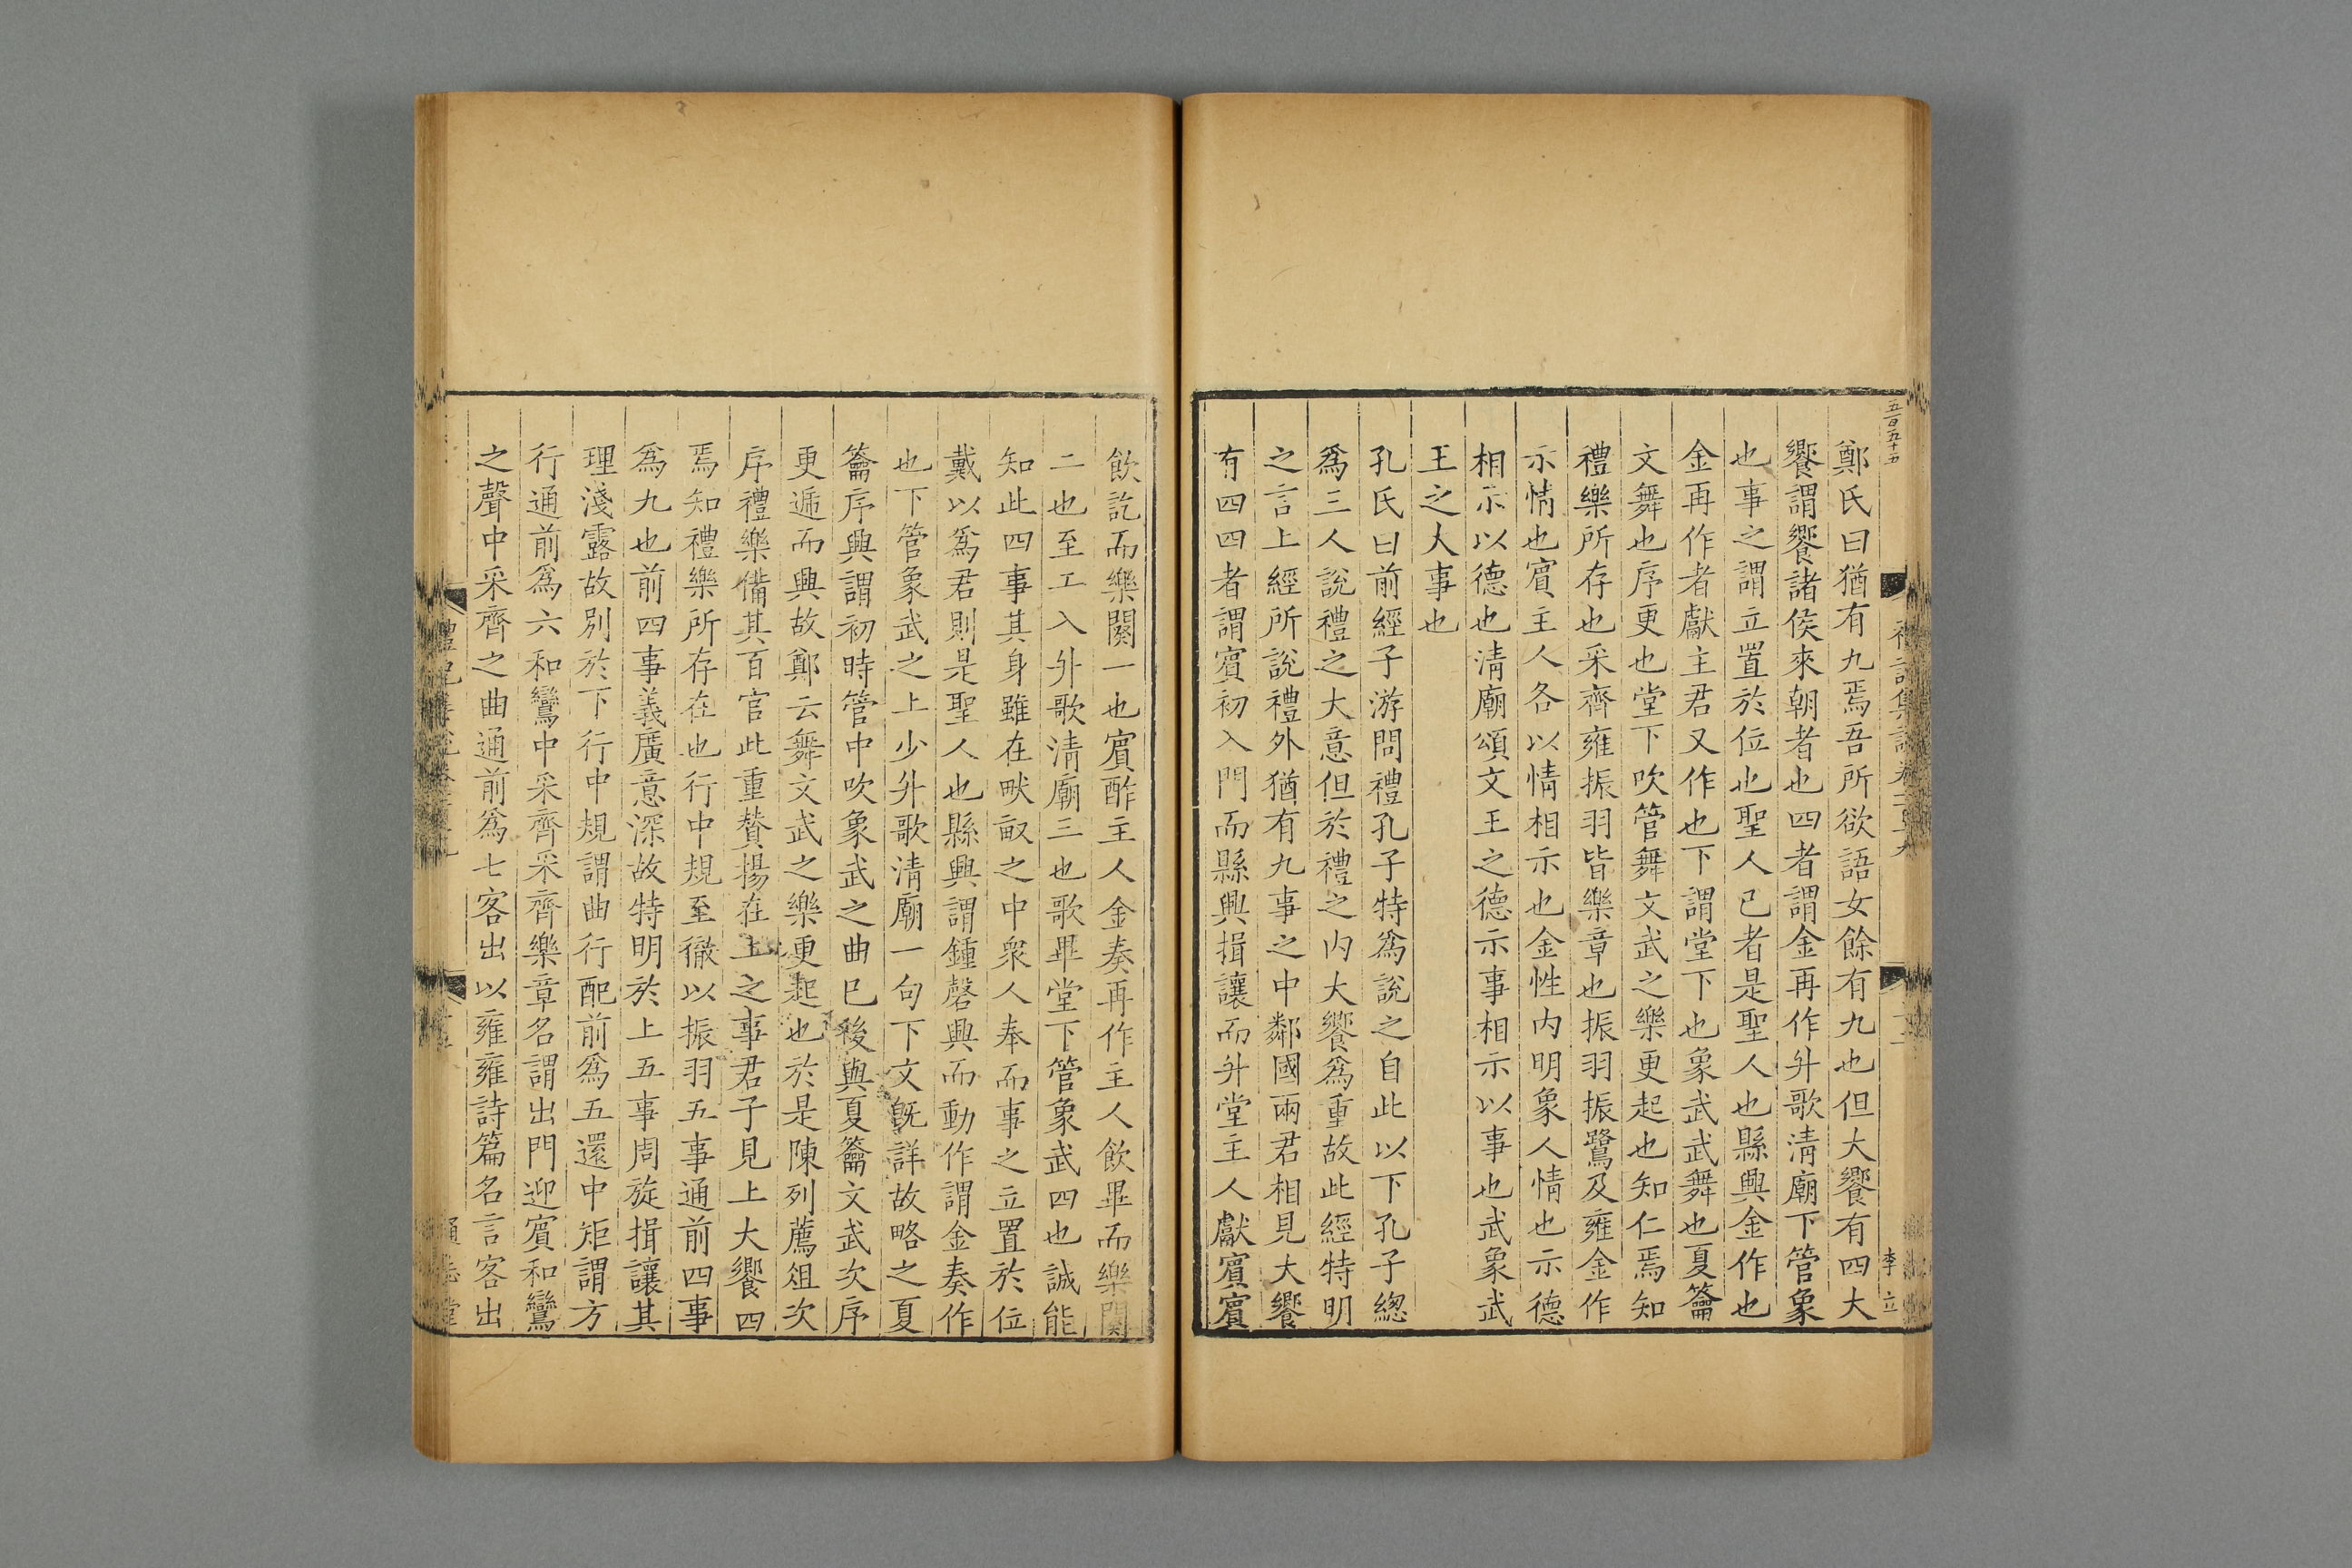 五百五十五
李立
鄭氏曰猶有九焉吾所欲語女餘有九也但大饗有四大
饗謂饗諸侯來朝者也四者謂金再作升歌清廟下管象
也事之謂立置於位也聖人已者是聖人也縣興金作也
金再作者獻主君又作也下謂堂下也象武武舞也夏籥
文舞也序更也堂下吹管舞文武之樂更起也知仁焉知
禮樂所存也采齊雍振羽皆樂章也振羽振鷺及雍金作
示情也賓主人各以情相示也金性內明象人情也示德
相示以德也清廟頌文王之德示事相示以事也武象武
王之大事也
孔氏曰前經子游問禮孔子特為說之自此以下孔子總
為三人說禮之大意但於禮之內大饗為重故此經特明
之言上經所說禮外猶有九事之中鄰國兩君相見大饗
有四四者謂賓初入門而縣興揖讓而升堂主人獻賓賓
飲訖而樂闋一也賓酢主人金奏再作主人飲畢而樂闋
二也至工入升歌清廟三也歌畢堂下管象武四也誠能
知此四事其身雖在畎畝之中衆人奉而事之立置於位
戴以為君則是聖人也縣興謂鍾磬興而動作謂金奏作
也下管象武之上少升歌清廟一句下文旣詳故略之夏
籥序興謂初時管中吹象武之曲已後與夏籥文武次序
更遞而興故鄭云舞文武之樂更起也於是陳列薦俎次
序禮樂備其百官此重贊揚在上之事君子見上大饗四
焉知禮樂所存在也行中規至徹以振羽五事通前四事
為九也前四事義廣意深故特明於上五事周旋揖讓其
理淺露故別於下行中規謂曲行配前為五還中矩謂方
行通前為六和鸞中采齊采齊樂章名謂出門迎賓和鸞
之聲中采齊之曲通前為七客出以雍雍詩篇名言客出